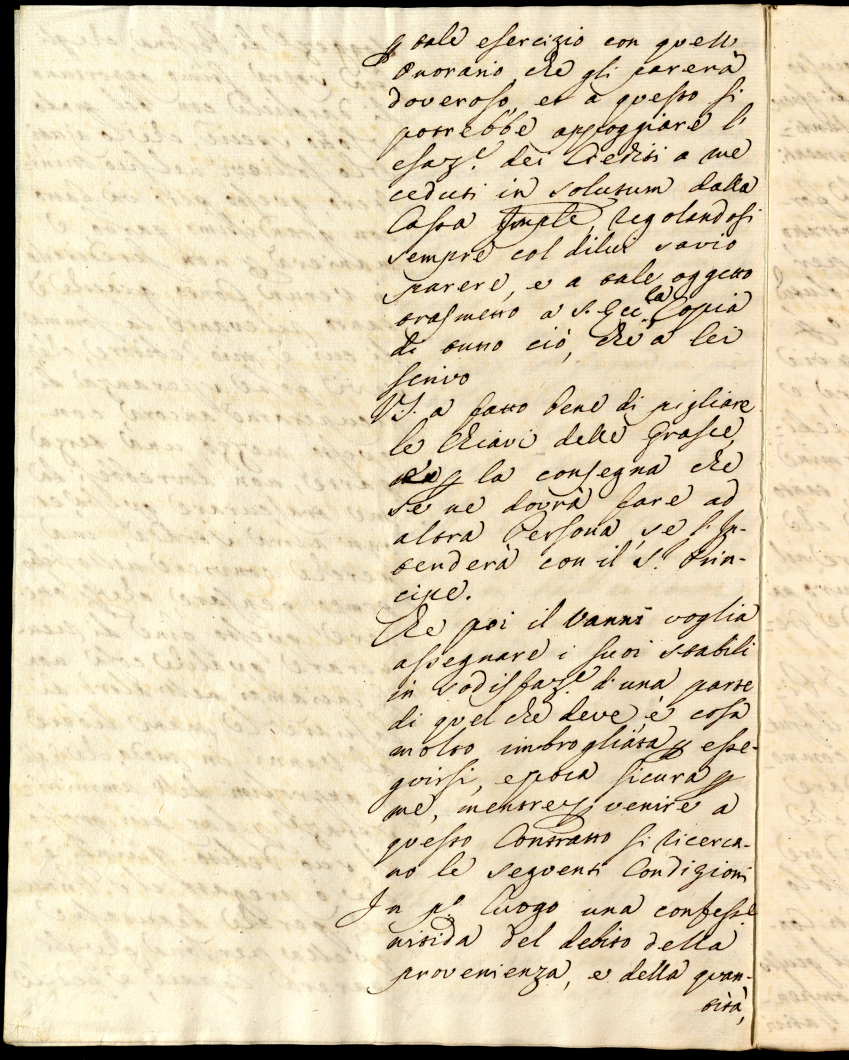 ꝑ tale esercizio con quell
Onorario che gli parerà
doveroso, et à questo si
potrebbe appoggiare l'
esaz.e dei Crediti a me
ceduti in solutum dalla
Cassa regolandosi
sempre col di lui savio
parere, e a tale oggetto
trasmetto a S. Ecc.la Copia
di tutto ciò, che a lei
scrivo
V.S. a fatto bene di pigliare
le Chiavi delle Grasce,
ꝑ la consegna che
se ne dovrà fare ad
altra Persona, se l'In-
tenderà con il S. Prin-
cipe.
Che poi il Vanni voglia
assegnare i suoi stabili
in sodisfaz.e d'una parte
di quel che deve, è cosa
molto imbrogliata ꝑ esse-
guirsi, e poca sicura ꝑ
me, mentre ꝑ venire a
questo Contratto si ricerca-
no le seguenti Condizioni
In p.o luogo una confess.e
nitida del debito della
provenienza, e della quan-
tità,